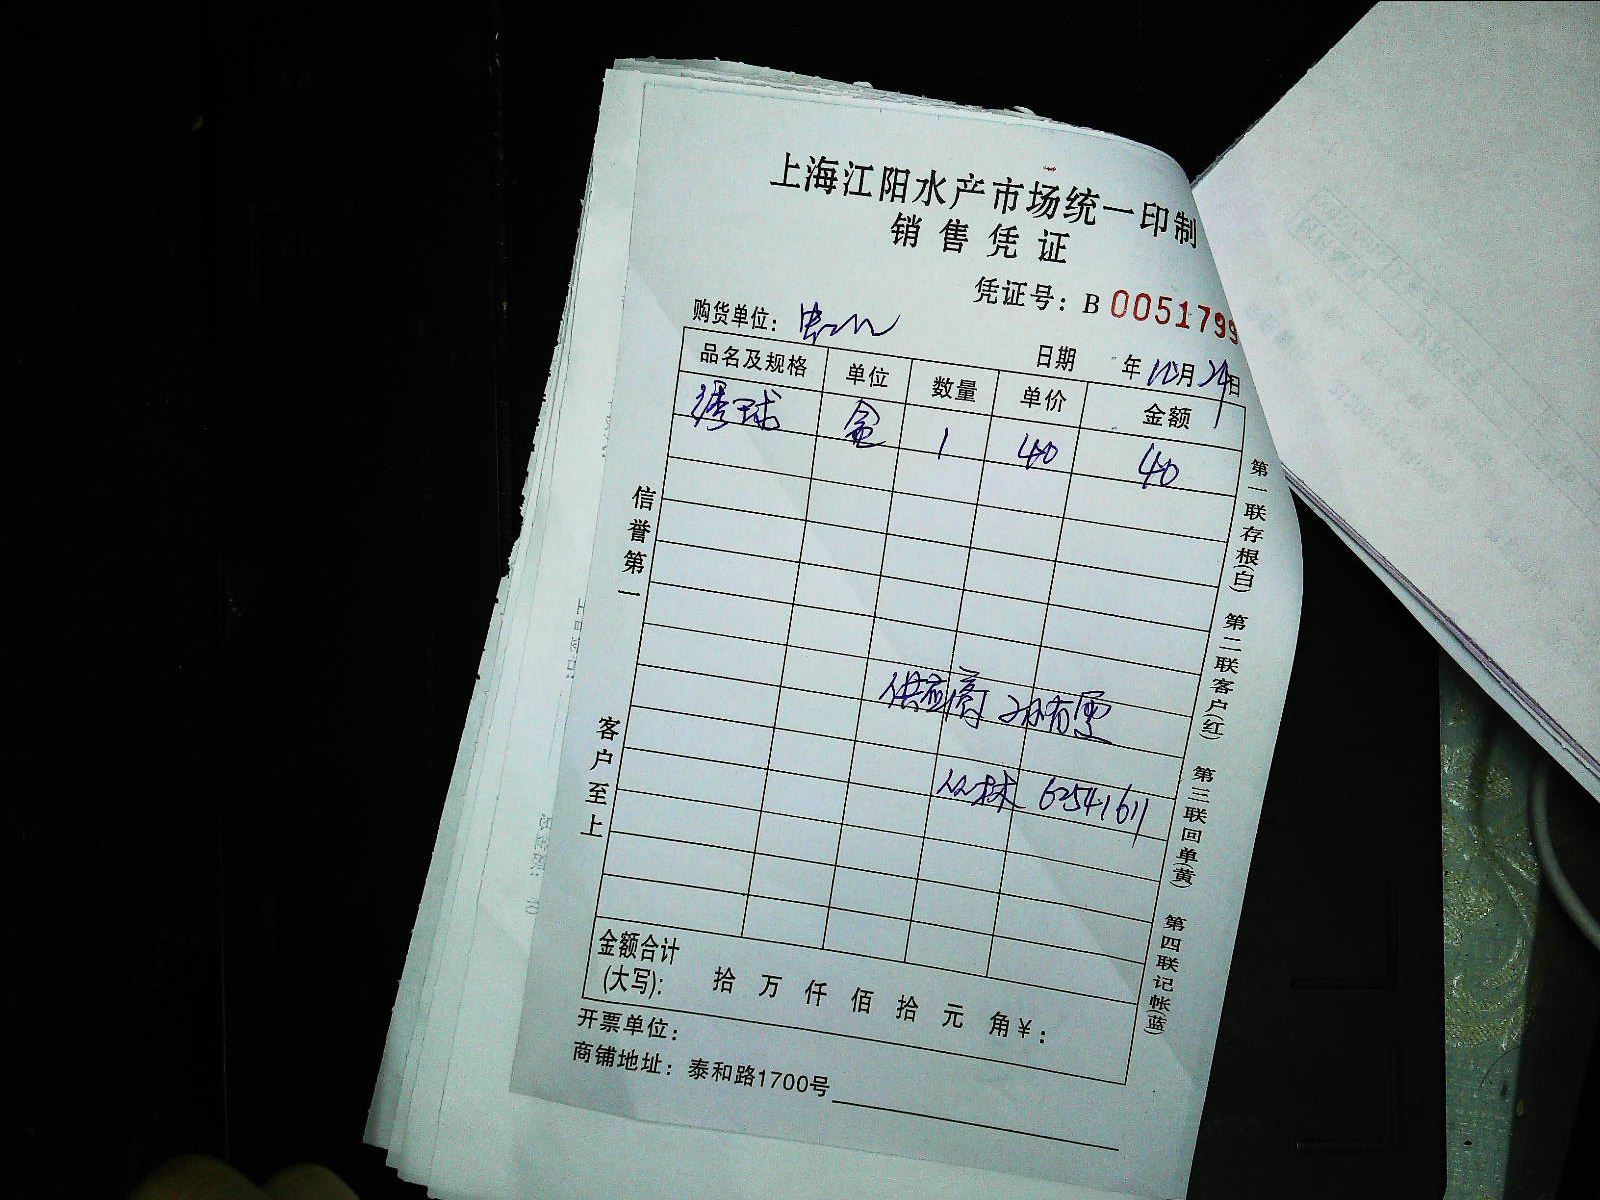 上海江阳水产市场统一印制
销售凭证
凭证号：B 0051799
购货单位：
日期 年10月24日
品名及规格 单位 数量 单价 金额
绣球 盒 1 40 40
供应商 孙有雷
丛林 62541611
金额合计
(大写)： 拾 万 仟 佰 拾 元 角¥：
开票单位：
商铺地址：泰和路1700号
信誉第一 客户至上
第一联存根(白) 第二联客户(红) 第三联回单(黄) 第四联记帐(蓝)